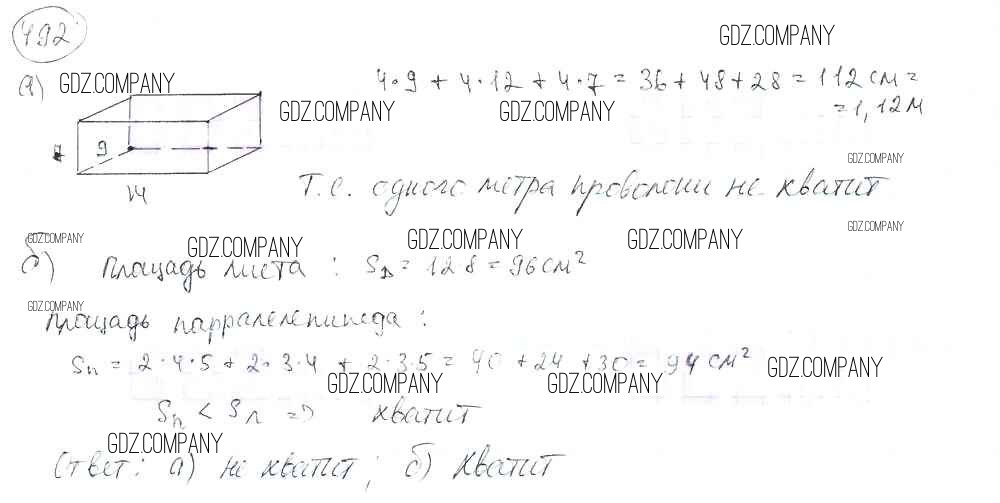 492
GDZ.COMPANY
а) GDZ.COMPANY 4·9 + 4·12 + 4·7 = 36 + 48 + 28 = 112 см =
= 1,12 м
GDZ.COMPANY GDZ.COMPANY
7 9
14
GDZ.COMPANY
Т.е. одного метра проволоки не хватит
GDZ.COMPANY
GDZ.COMPANY GDZ.COMPANY GDZ.COMPANY GDZ.COMPANY
б) площадь листа : Sл = 12 8 = 96 см²
GDZ.COMPANY
площадь парралелепипеда :
Sп = 2·4·5 + 2·3·4 + 2·3·5 = 40 + 24 + 30 = 94 см²
GDZ.COMPANY GDZ.COMPANY GDZ.COMPANY
Sп < Sл => хватит
GDZ.COMPANY
Ответ: а) не хватит; б) хватит